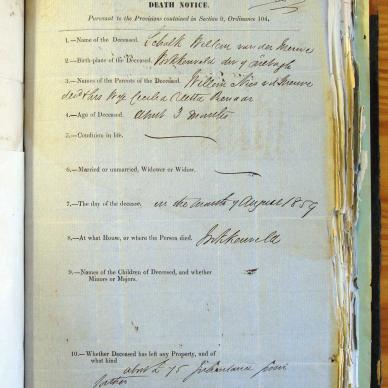 DEATH NOTICE.
Pursuant to the Provisions contained in Section 9, Ordinance 104.
1.—Name of the Deceased. Schalk Willem van der Merwe
2.—Birth-place of the Deceased.
3.—Names of the Parents of the Deceased. Willem v d Merwe
Cecilia Aletta Pienaar
4.—Age of Deceased. about 3 months
5.—Condition in life.
6.—Married or unmarried, Widower or Widow.
7.—The day of the decease. in the month of August 1859
8.—At what House, or where the Person died.
9.—Names of the Children of Deceased, and whether
Minors or Majors.
10.—Whether Deceased has left any Property, and of
what kind
about £ 75 from
father